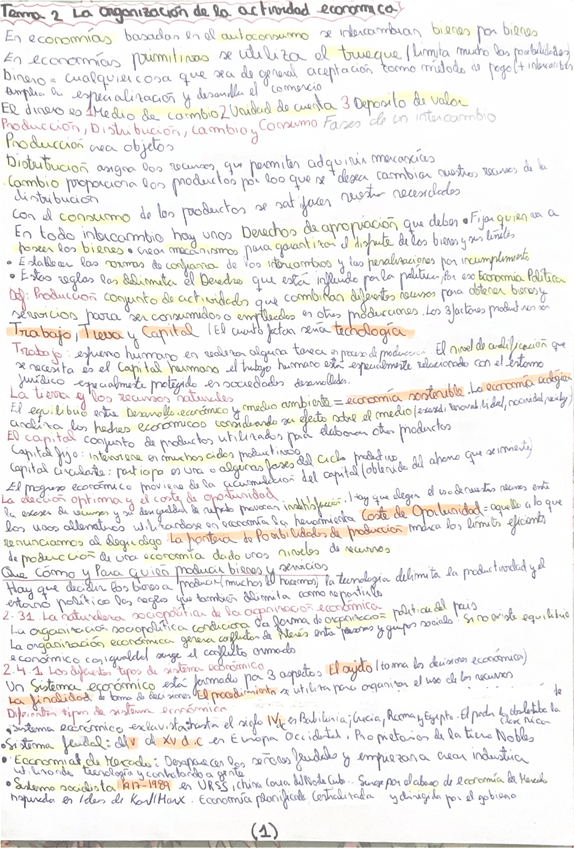 Tema 2 La organización de la actividad económica
En economías basadas en el autoconsumo se intercambian bienes por bienes
En economías primitivas se utiliza el trueque (limita mucho las posibilidades)
Dinero = cualquier cosa que sea de general aceptación como método de pago (+ intercambios
amplia la especialización y desarrolla el comercio
El dinero es 1 Medio de cambio 2 Unidad de cuenta 3 Deposito de valor
Producción, Distribución, Cambio y Consumo Fases de un intercambio
Producción crea objetos
Distribución asigna los recursos, que permiten adquirir mercancías
Cambio proporciona los productos por los que se desea cambiar nuestros recursos de la
distribución
Con el consumo de los productos se satisfacen nuestras necesidades
En todo intercambio hay unos Derechos de apropiación que deben • Fijar quien va a
poseer los bienes • crear mecanismos para garantizar el disfrute de los bienes y sus límites
• Establecer las normas de confianza de los intercambios y las penalizaciones por incumplimiento
• Estas reglas las delimita el Derecho que está influido por la política, por eso Economía Política
Def: Producción conjunto de actividades que combinan diferentes recursos para obtener bienes y
servicios para ser consumidos o empleados en otras producciones. Los 3 factores productivos son
Trabajo, Tierra y Capital (El cuarto factor sería tecnología
Trabajo: esfuerzo humano en realizar alguna tarea en proceso de producción. El nivel de cualificación que
se necesita es el Capital humano el trabajo humano está especialmente relacionado con el entorno
jurídico especialmente protegido en sociedades desarrolladas.
La tierra y los recursos naturales
El equilibrio entre Desarrollo económico y medio ambiente = economía sostenible. La economía ecológica
analiza los hechos económicos considerando su efecto sobre el medio
El capital conjunto de productos utilizados para elaborar otros productos
Capital fijo: interviene en muchos ciclos productivos
Capital circulante: participa en una o algunas fases del ciclo productivo
El progreso económico proviene de la acumulación del capital (obtenido del ahorro que se invierte)
La elección óptima y el coste de oportunidad
la escasez de recursos y su desigualdad de reparto provocan insatisfacción. Hay que elegir el uso de nuestros recursos entre
los usos alternativos utilizandose en economía la herramienta Coste de Oportunidad = aquello a lo que
renunciamos al elegir algo La frontera de Posibilidades de producción indica los límites eficientes
de producción de una economía dado unos niveles de recursos
Que Cómo y Para Quién producir bienes y servicios
Hay que decidir los bienes a producir (muchos lo hacemos) la tecnología delimita la productividad y el
entorno político las reglas que también delimita como repartirlo
2.3.1 La naturaleza sociopolítica de la organización económica
La organización sociopolítica condiciona la forma de organización = política del país
La organización económica genera conflictos de interés entre personas y grupos sociales. Si no existe equilibrio
económico con igualdad surge el conflicto armado
2.4.1 Los diferentes tipos de sistema económico
Un sistema económico está formado por 3 aspectos El sujeto (toma las decisiones económicas)
La finalidad de toma de decisiones El procedimiento se utiliza para organizar el uso de los recursos
Diferentes tipos de sistema económico
• Sistema económico esclavista hasta el siglo IV en Babilonia, Grecia, Roma y Egipto. El poder lo
• Sistema feudal: del V al XV d.C en Europa Occidental. Propietarios de la tierra Nobles
• Economía de Mercado: Desaparecen los señores feudales y empiezan a crear industria
utilizando tecnología y contratando a gente
• Sistema socialista 1917-1989 en URSS, China Corea del Norte Cuba. Surge por el abuso de economía de Mercado
inspirado en ideas de Karl Marx. Economía planificada Centralizada y dirigida por el gobierno
(1)